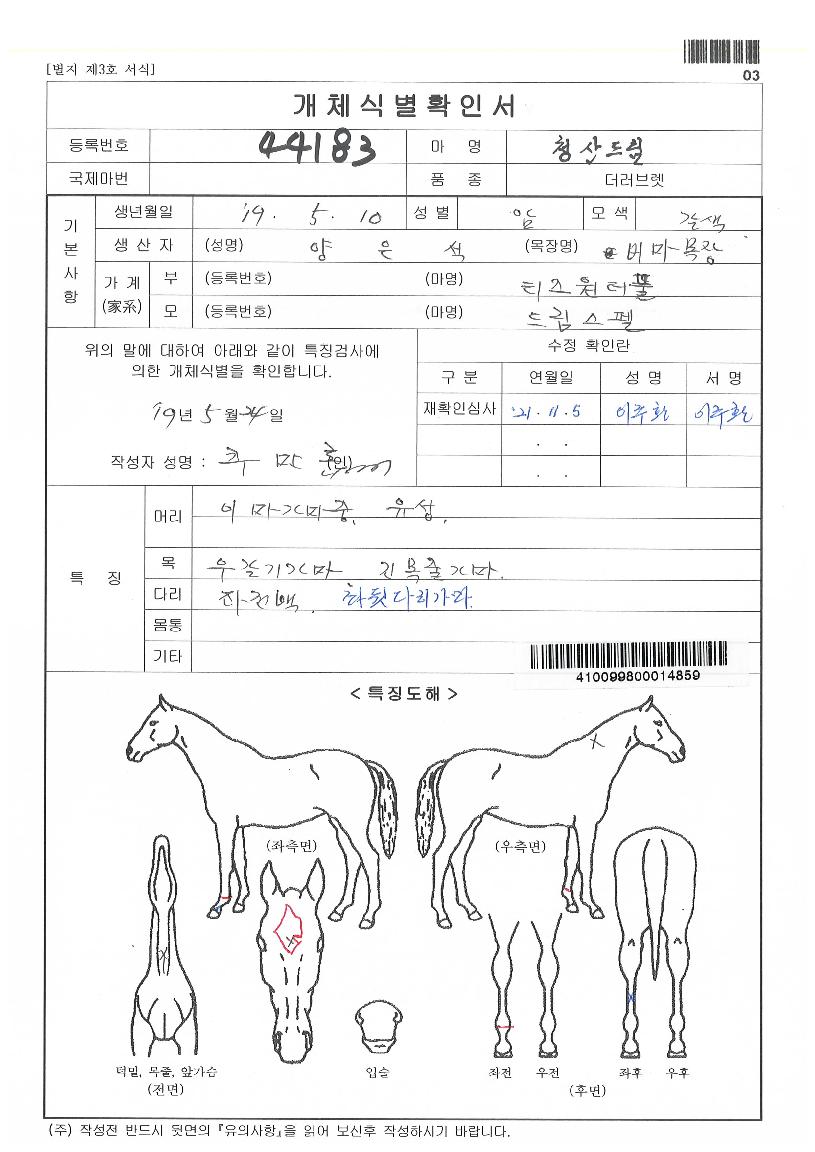 03
[별지 제3호 서식]
개체식별확인서
등록번호 44183 마 명 청산드림
국제마번 품 종 더러브렛
기본사항 생년월일 '19. 5. 10 성별 암 모색 갈색
생산자 (성명) 양 은 석 (목장명) 버마목장
가계(家系) 부 (등록번호) (마명) 티즈원더풀
모 (등록번호) (마명) 드림스펠
위의 말에 대하여 아래와 같이 특징검사에
의한 개체식별을 확인합니다.
수정 확인란
구 분 연월일 성 명 서 명
재확인심사 '21. 11. 5 이주환 이주환
. .
. .
19년 5월 24일
작성자 성명 : (인)
특 징
머리 이마가마중, 유성.
목 우갈기가마 진목줄가마.
다리 좌전백. 좌뒷다리가마.
몸통
기타
410099800014859
< 특징도해 >
(좌측면) (우측면)
턱밑, 목줄, 앞가슴 (전면)
입술
좌전 우전 좌후 우후
(후면)
(주) 작성전 반드시 뒷면의 『유의사항』을 읽어 보신후 작성하시기 바랍니다.